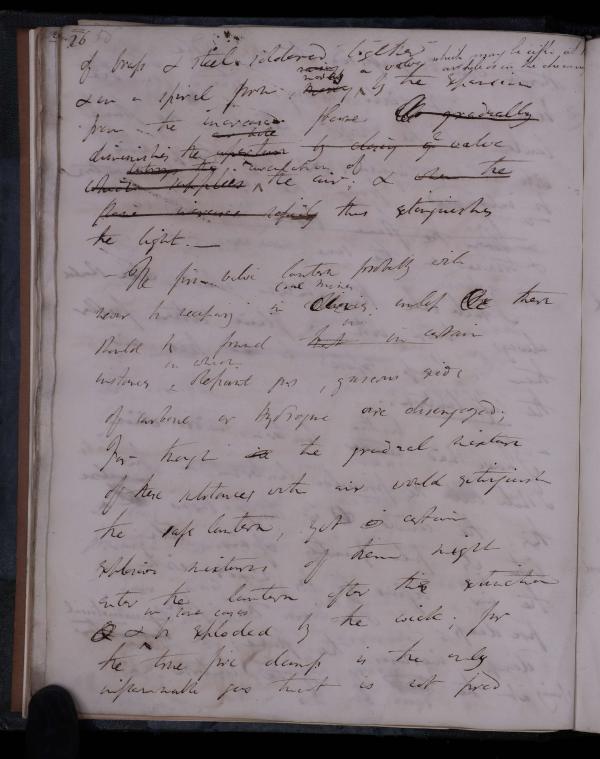 26
of brass & steel soldered together
which may be
& in a spiral form, moves a valve by the expansion
from the increased flame gradually
diminishes the by closing a valve
circulation of
which supplies the air; & when the
flame increases rapidly thus extinguishes
the light. —
— The fire valve lantern probably will
coal mines
never be necessary in collieries unless there
should be found but in certain
in which
instances, olefiant gas, gaseous oxide
of carbone or hydrogene are disengaged;
For though in the gradual mixture
of these substances with air would extinguish
the safe lantern, yet a certain
explosive mixtures of them might
enter the lantern after the extinction
in some cases
& be exploded by the wick; for
the true fire damp is the only
inflammable gas that is not fired